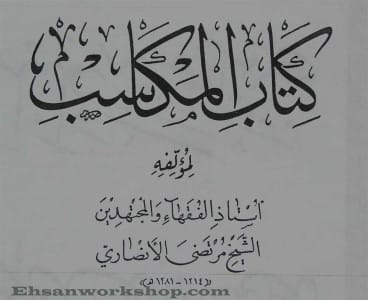 كِتَابُ المَكَاسِبِ
لِمُؤَلِّفِهِ
أُسْتَاذِ الفُقَهَاءِ وَالمُجْتَهِدِينَ
الشَّيْخِ مُرْتَضَى الأَنْصَارِيِّ
«(١٢١٤ - ١٢٨١ هـ)»
Ehsanworkshop.com